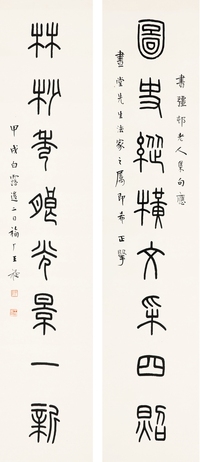 書彊邨老人集句應
圖史縱橫文采四照
堂先生法家之屬即希正擘
林杪光景一新
甲戌白露二日福厂王禔